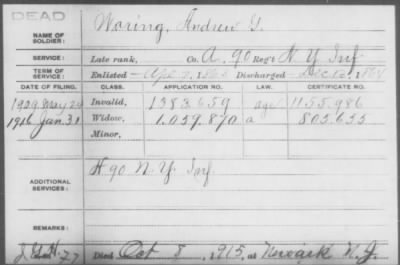 DEAD
NAME OF SOLDIER: Waring, Andrew G.
SERVICE: Late rank, Co. A, 90 Reg't N. Y. Inf.
TERM OF SERVICE: Enlisted Discharged
DATE OF FILING. CLASS. APPLICATION NO. LAW. CERTIFICATE NO.
May 24 Invalid, 1383.659 age 1155.986
1916 Jan. 31 Widow, 1.059.870 a 805.635
Minor,
ADDITIONAL SERVICES: H 90 N. Y. Inf.
REMARKS:
Died Oct 8, 1915, at Newark N. J.